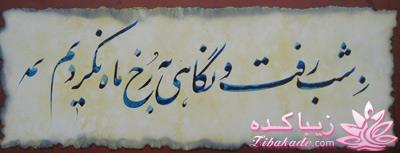 شب رفت و نگاهی به رُخ ماه نکردیم
زیباکده
Zibakade.com